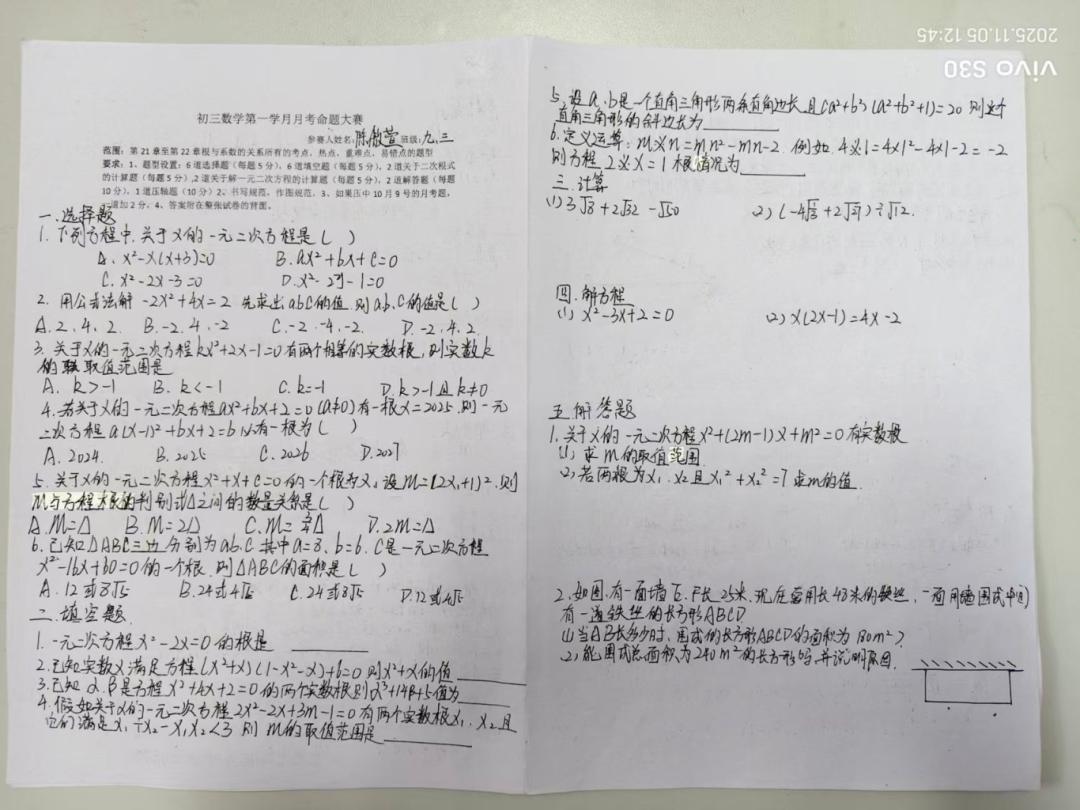 2025.11.05 12:45
vivo S30
初三数学第一学月月考命题大赛
参赛人姓名:陈傲萱 班级:九、三
范围:第21章至第22章根与系数的关系所有的考点、热点、重难点、易错点的题型
要求:1、题型设置:6道选择题(每题5分),6道填空题(每题5分),2道关于二次根式
的计算题(每题5分),2道关于解一元二次方程的计算题(每题5分),2道解答题(每题
10分),1道压轴题(10分)2、书写规范,作图规范。3、如果压中10月9号的月考题,
一道加2分。4、答案附在整张试卷的背面。
一.选择题
1. 下列方程中,关于x的一元二次方程是( )
A. x²-x(x+3)=0 B. ax²+bx+c=0
C. x²-2x-3=0 D. x²-2y-1=0
2. 用公式法解 -2x²+4x=2 先求出abc的值.则a、b、c的值是( )
A. 2、4、2. B. -2、4、-2 C. -2、-4、-2. D. -2、4、2.
3. 关于x的一元二次方程kx²+2x-1=0有两个相等的实数根,则实数k
的取值范围是
A. k>-1 B. k<-1 C. k=-1 D. k>-1且k≠0
4. 若关于x的一元二次方程ax²+bx+2=0(a≠0)有一根x=2025.则一元
二次方程a(x-1)²+bx+2=b必有一根为( )
A. 2024. B. 2025 C. 2026 D. 2027
5. 关于x的一元二次方程x²+x+c=0的一个根为x₁设M=(2x₁+1)².则
M与方程根的判别式Δ之间的数量关系是( )
A. M=Δ B. M=2Δ C. M=Δ D. 2M=Δ
6. 已知△ABC三边分别为a、b、c 其中a=8、b=6. c是一元二次方程
x²-16x+60=0的一个根.则△ABC的面积是( )
A. 12或8√5 B. 24或4√5 C. 24或8√5 D. 12或4√5
二.填空题
1. 一元二次方程x²-2x=0的根是
2. 已知实数x满足方程(x²+x)(1-x²-x)+6=0则x²+x的值
3. 已知α、β是方程x²+4x+2=0的两个实数根则α³+14β+5值为
4. 假如关于x的一元二次方程2x²-2x+3m-1=0有两个实数根x₁、x₂且
它们满足x₁+x₂-x₁x₂<3则m的取值范围是
5. 设a、b是一个直角三角形两条直角边长且(a²+b²)(a²+b²+1)=20则这个
直角三角形的斜边长为
6. 定义运算:m※n=mn²-mn-2. 例如.4※1=4×1²-4×1-2=-2
则方程2※x=1根情况为
三.计算
(1) 3√8+2√32-√50 (2) (-4√3+2√27)÷√12.
四.解方程
(1) x²-3x+2=0 (2) x(2x-1)=4x-2
五 解答题
1. 关于x的一元二次方程x²+(2m-1)x+m²=0有实数根
(1) 求m的取值范围
(2) 若两根为x₁、x₂且x₁²+x₂²=7求m的值.
2. 如图.有一面墙E.F长25米.现在需用长48米的铁丝,一面用墙围成中间
有一道铁丝的长方形ABCD
(1) 当AB长多少时.围成的长方形ABCD的面积为180m²?
(2) 能围成总面积为240m²的长方形吗.并说明原因.